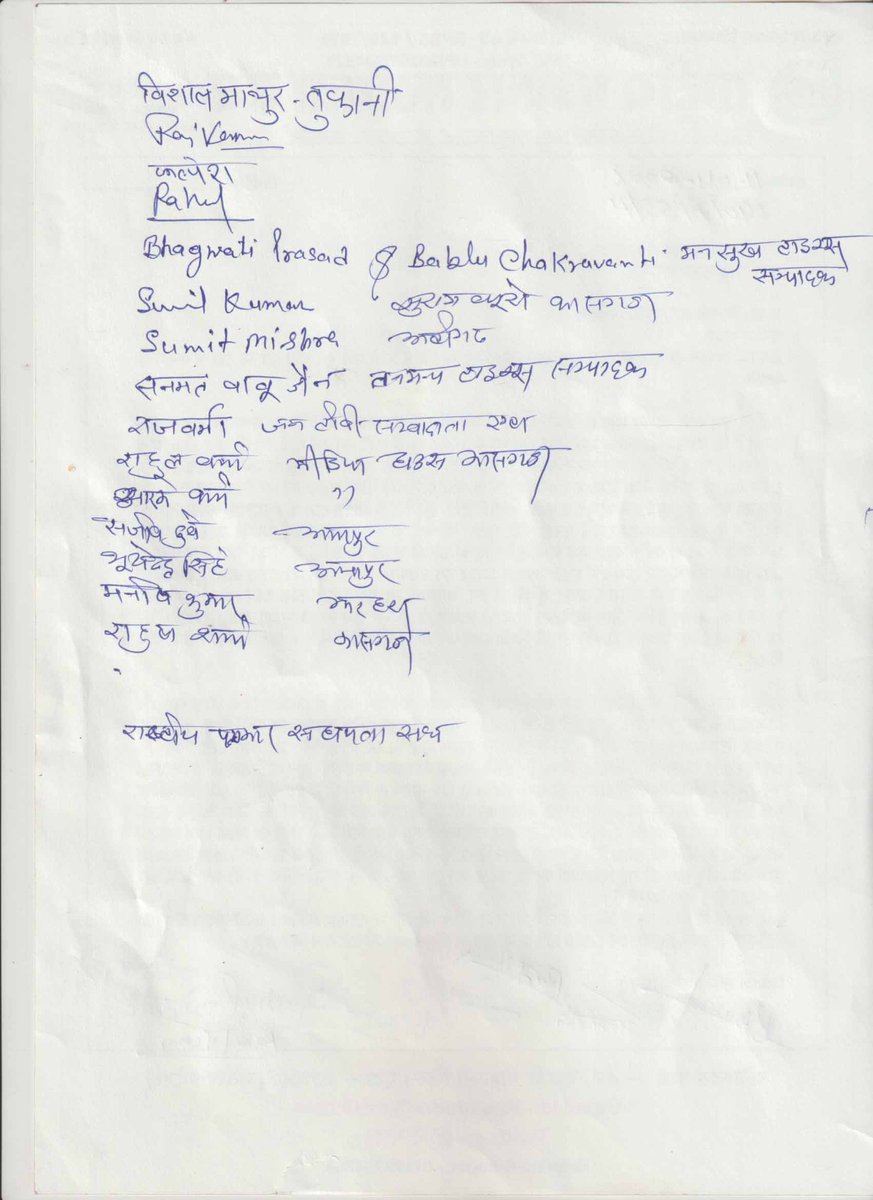 विशाल माथुर - तुफानी
Raj Kumar
Rahul
Bhagwati Prasad & Bablu Chakravarti मनसुख टाइम्स
सम्पादक
Sunil Kumar कासगंज
Sumit Mishra अलीगढ
सनमत बाबू जैन टाइम्स सम्पादक
राजवर्मा टीवी सम्वादाता एटा
राहुल वर्मा मीडिया हाउस कासगंज
आरके वर्मा "
संजीव दुबे अमापुर
भूपेन्द्र सिंह अमापुर
मनीष कुमार
राहुल शर्मा कासगंज
राष्ट्रीय पत्रकार संघ